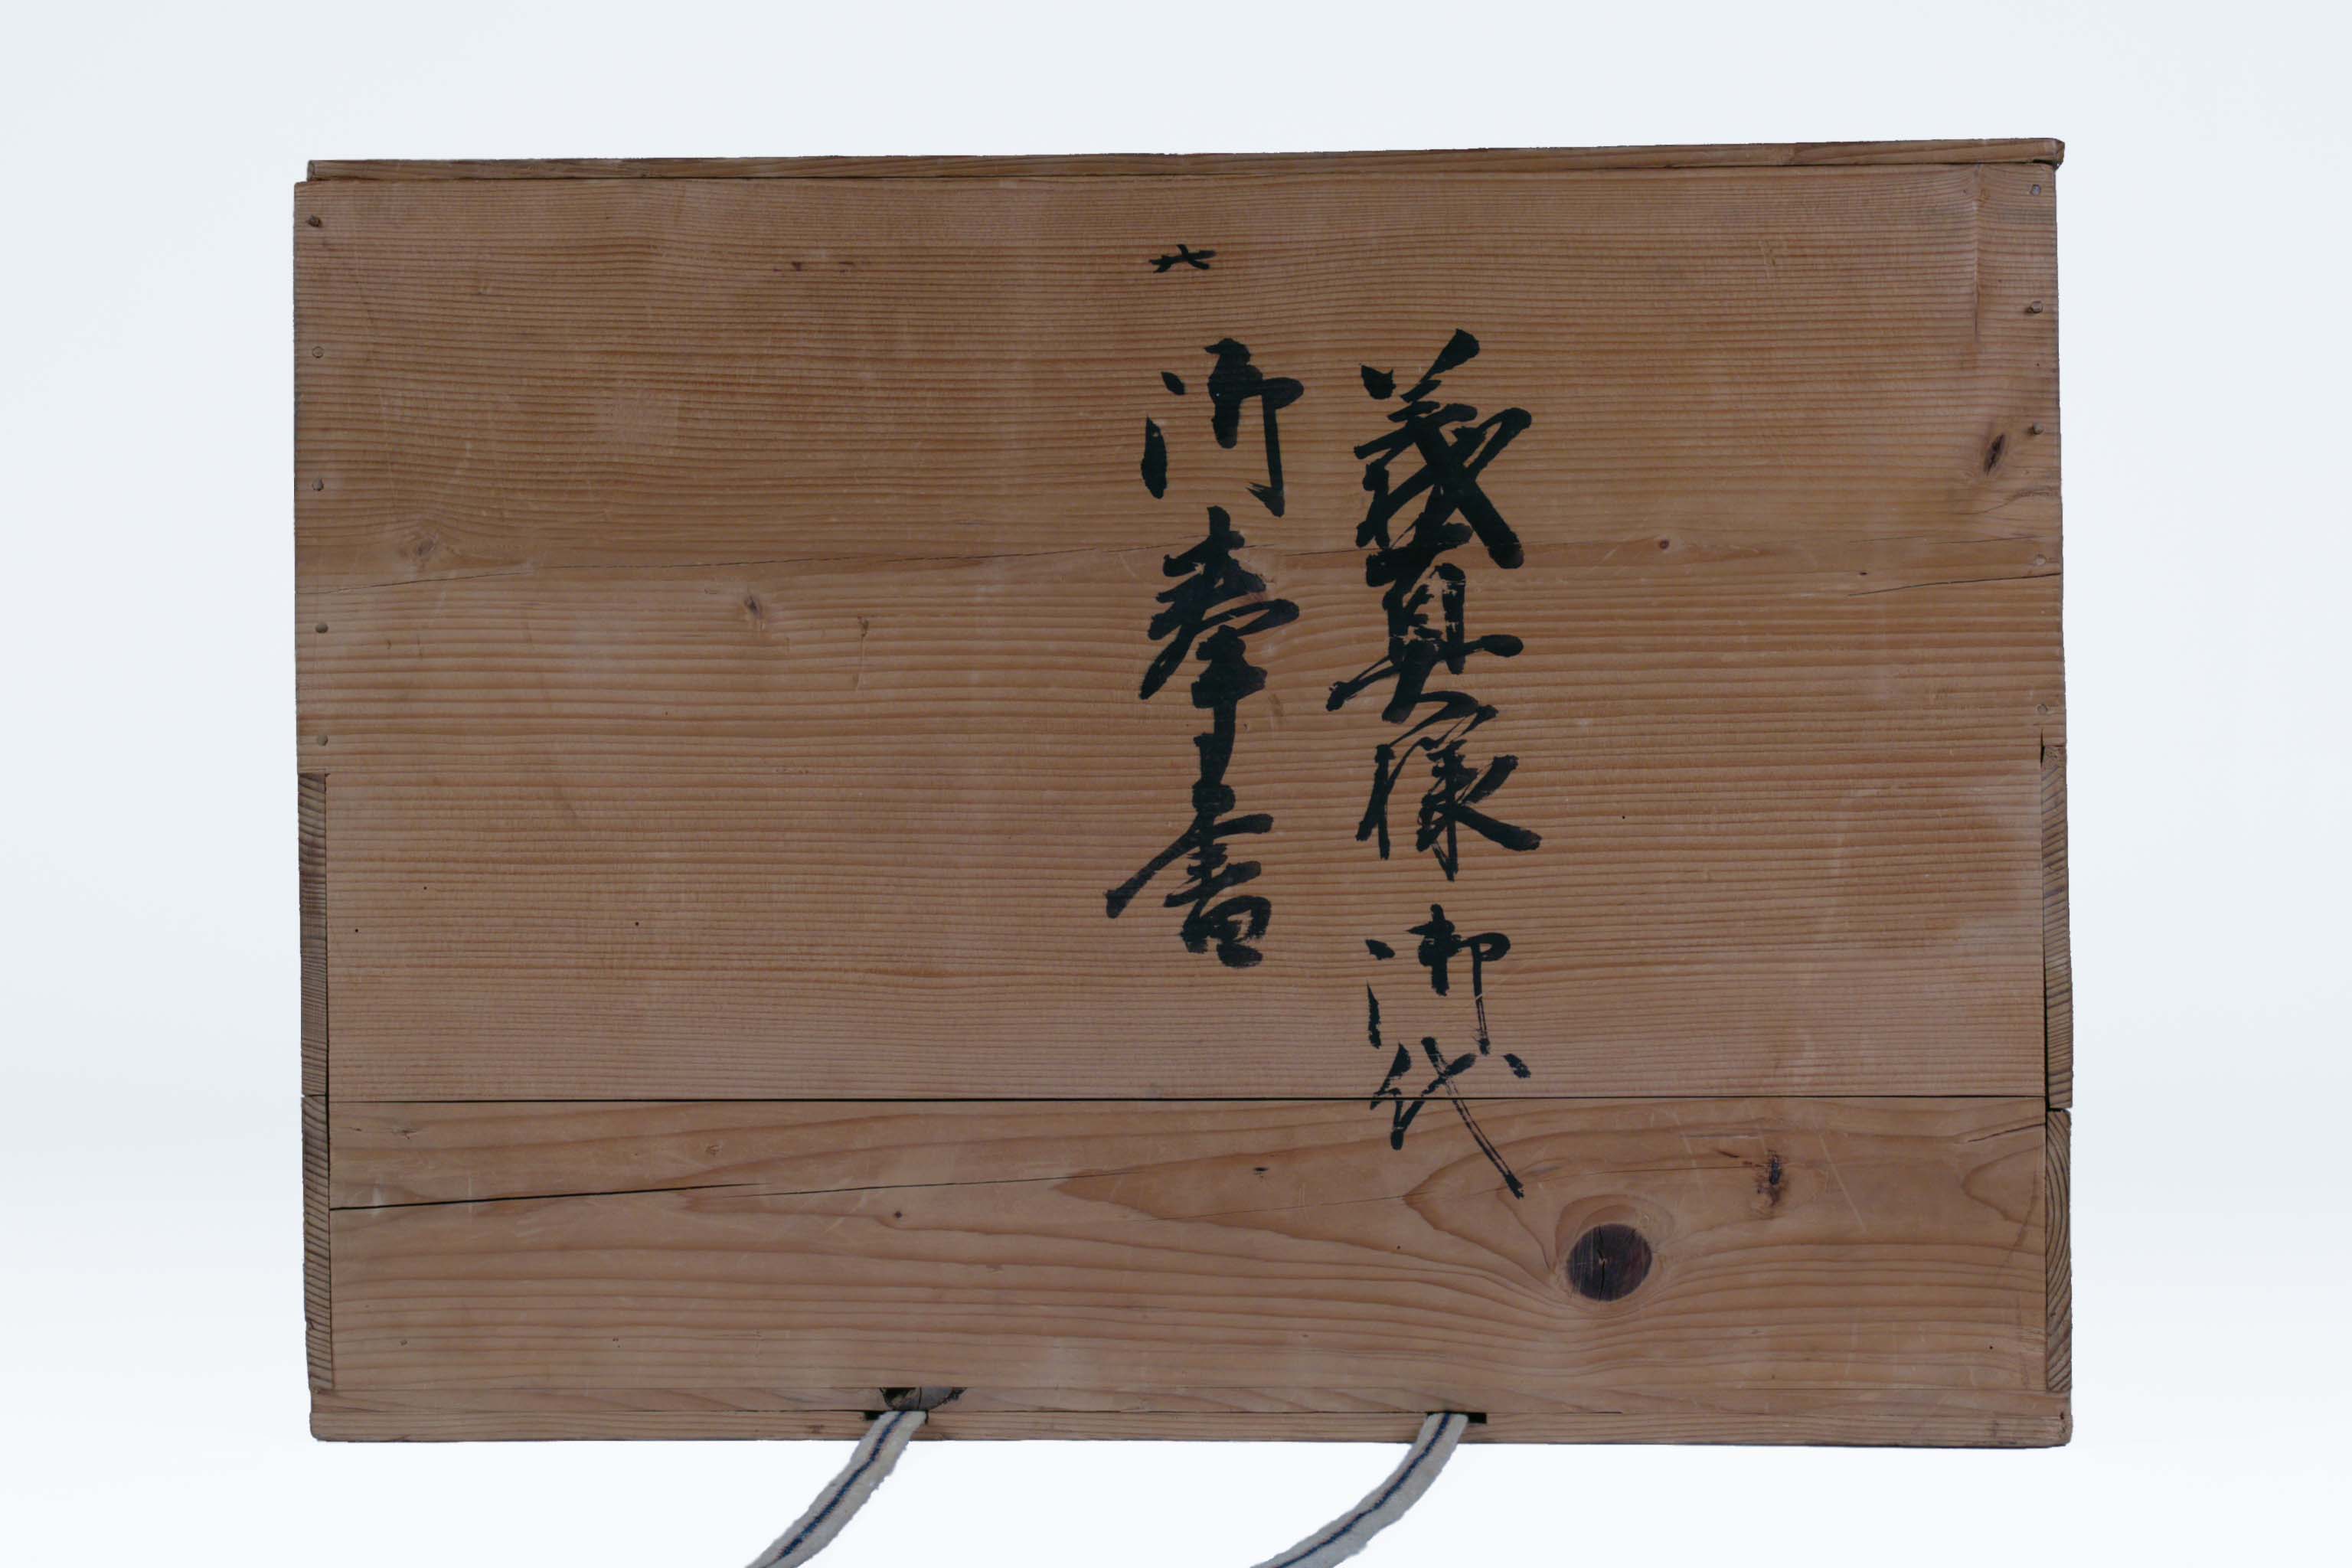 義真様御代
御奉書